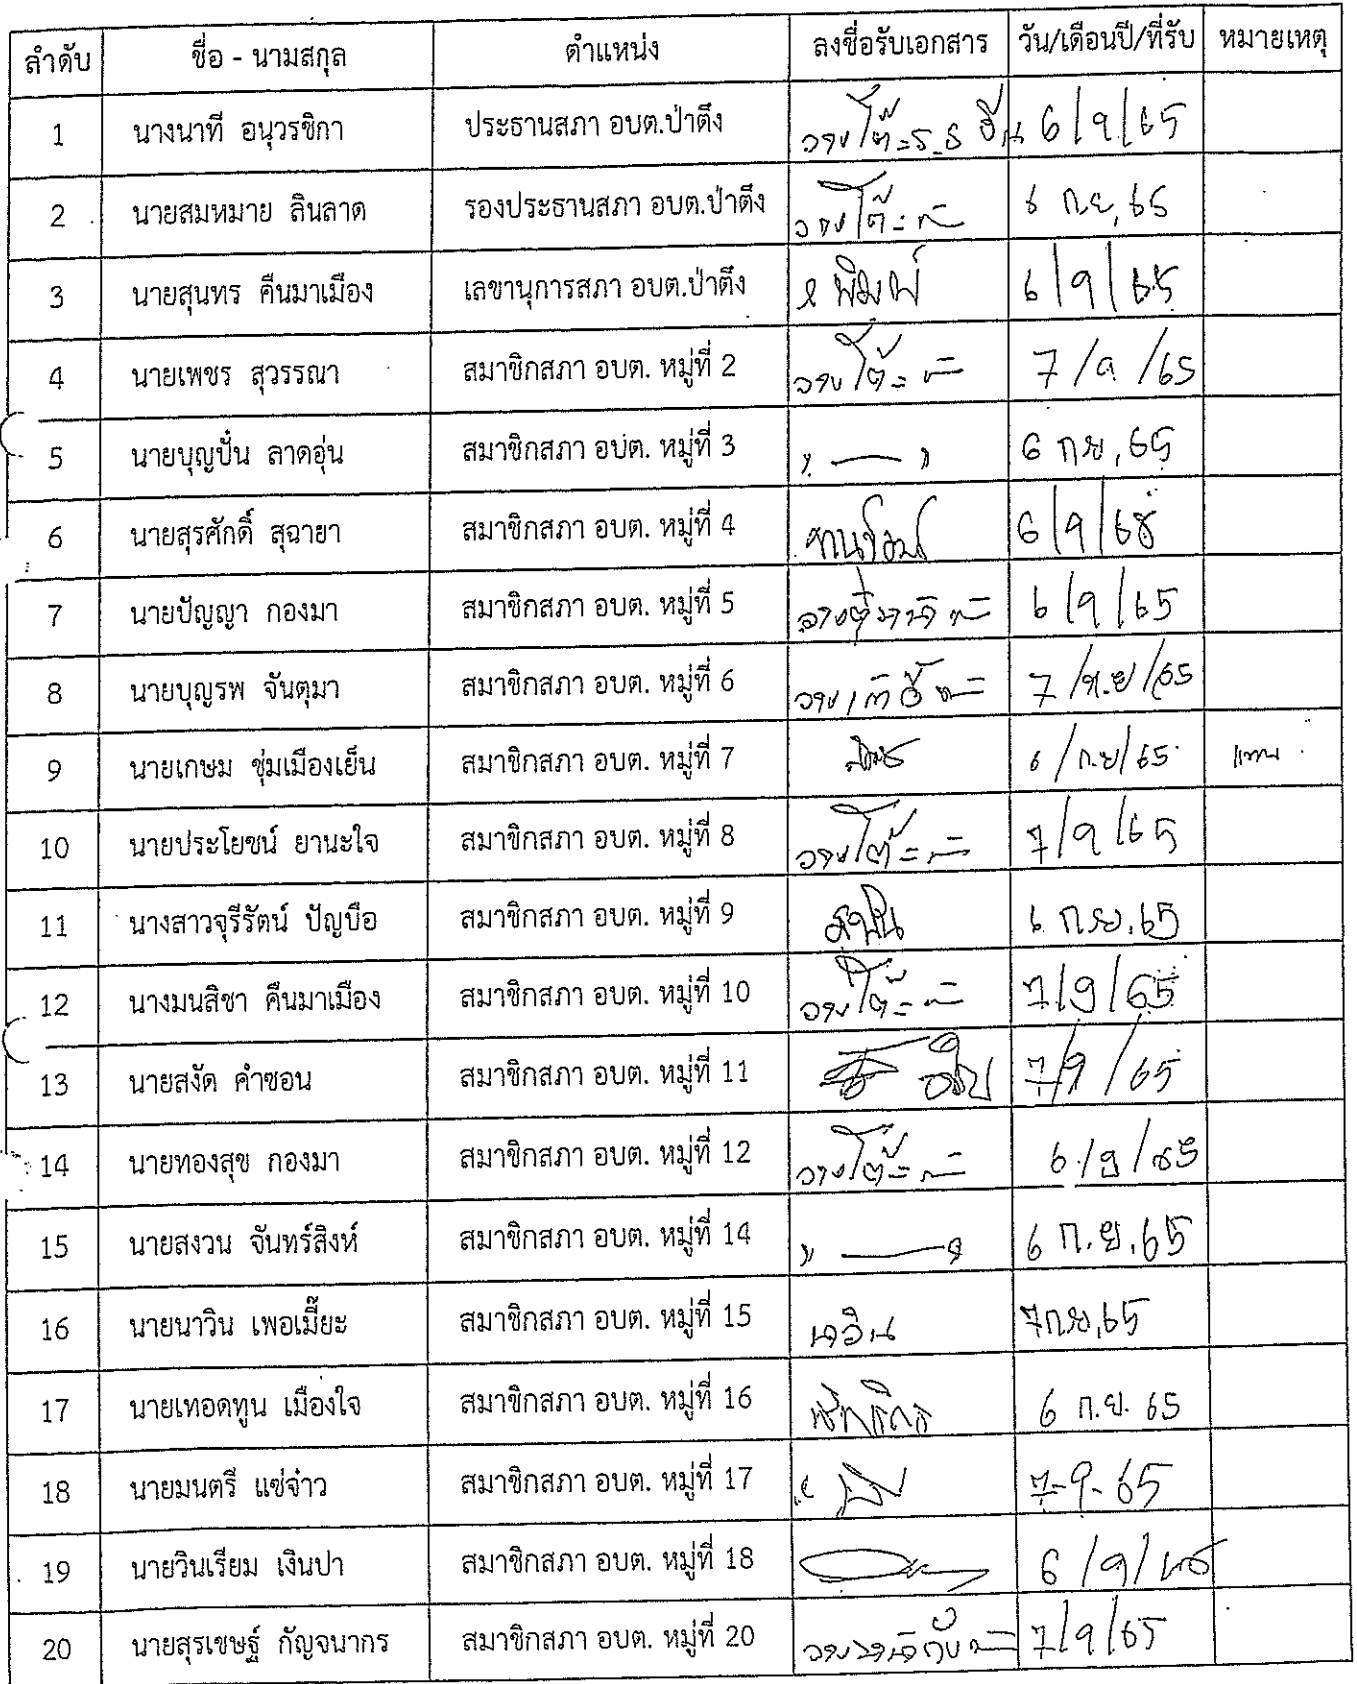 ลำดับ ชื่อ - นามสกุล ตำแหน่ง ลงชื่อรับเอกสาร วัน/เดือนปี/ที่รับ หมายเหตุ
1 นางนาที อนุวรชิกา ประธานสภา อบต.ป่าตึง 6/9/65
2 นายสมหมาย ลินลาด รองประธานสภา อบต.ป่าตึง 6 ก.ย, 65
3 นายสุนทร คืนมาเมือง เลขานุการสภา อบต.ป่าตึง 6/9/65
4 นายเพชร สุวรรณา สมาชิกสภา อบต. หมู่ที่ 2 วางโต๊ะ 7/9/65
5 นายบุญปั๋น ลาดอุ่น สมาชิกสภา อบต. หมู่ที่ 3 6 กย, 65
6 นายสุรศักดิ์ สุฉายา สมาชิกสภา อบต. หมู่ที่ 4 6/9/65
7 นายปัญญา กองมา สมาชิกสภา อบต. หมู่ที่ 5 6/9/65
8 นายบุญรพ จันตุมา สมาชิกสภา อบต. หมู่ที่ 6 7/ก.ย/65
9 นายเกษม ชุ่มเมืองเย็น สมาชิกสภา อบต. หมู่ที่ 7 6/ก.ย/65 แทน
10 นายประโยชน์ ยานะใจ สมาชิกสภา อบต. หมู่ที่ 8 วางโต๊ะ 7/9/65
11 นางสาวจุรีรัตน์ ปัญบือ สมาชิกสภา อบต. หมู่ที่ 9 6 ก.ย. 65
12 นางมนสิชา คืนมาเมือง สมาชิกสภา อบต. หมู่ที่ 10 วางโต๊ะ 7/9/65
13 นายสงัด คำซอน สมาชิกสภา อบต. หมู่ที่ 11 7/9/65
14 นายทองสุข กองมา สมาชิกสภา อบต. หมู่ที่ 12 วางโต๊ะ 6/9/65
15 นายสงวน จันทร์สิงห์ สมาชิกสภา อบต. หมู่ที่ 14 6 ก.ย. 65
16 นายนาวิน เพอเมี๊ยะ สมาชิกสภา อบต. หมู่ที่ 15 นาวิน 7 ก.ย, 65
17 นายเทอดทูน เมืองใจ สมาชิกสภา อบต. หมู่ที่ 16 6 ก.ย. 65
18 นายมนตรี แซ่จ๋าว สมาชิกสภา อบต. หมู่ที่ 17 7-9-65
19 นายวินเรียม เงินปา สมาชิกสภา อบต. หมู่ที่ 18 6/9/65
20 นายสุรเชษฐ์ กัญจนากร สมาชิกสภา อบต. หมู่ที่ 20 7/9/65